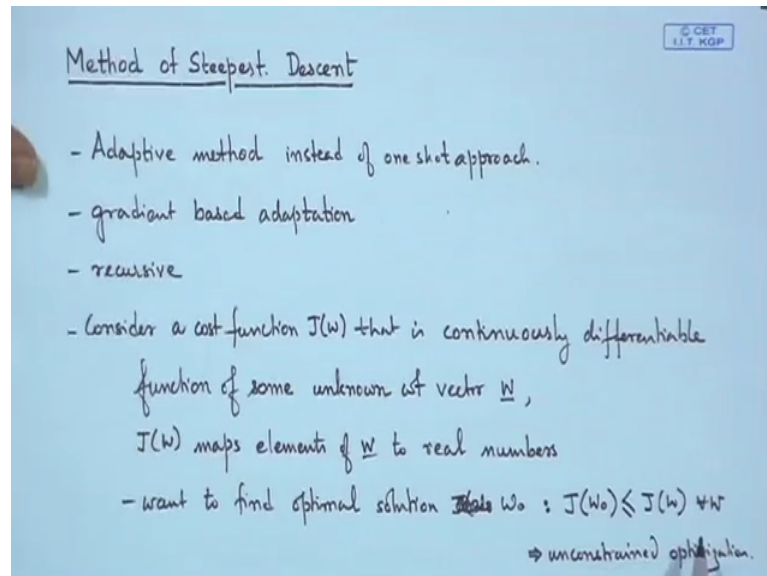 © CET
I.I.T. KGP
Method of Steepest. Descent
- Adaptive method instead of one shot approach.
- gradient based adaptation
- recursive
- Consider a cost function J(w) that is continuously differentiable
function of some unknown wt vector W,
J(W) maps elements of W to real numbers
- want to find optimal solution W₀ : J(W₀) ≤ J(w) ∀w
⇒ unconstrained optimization.